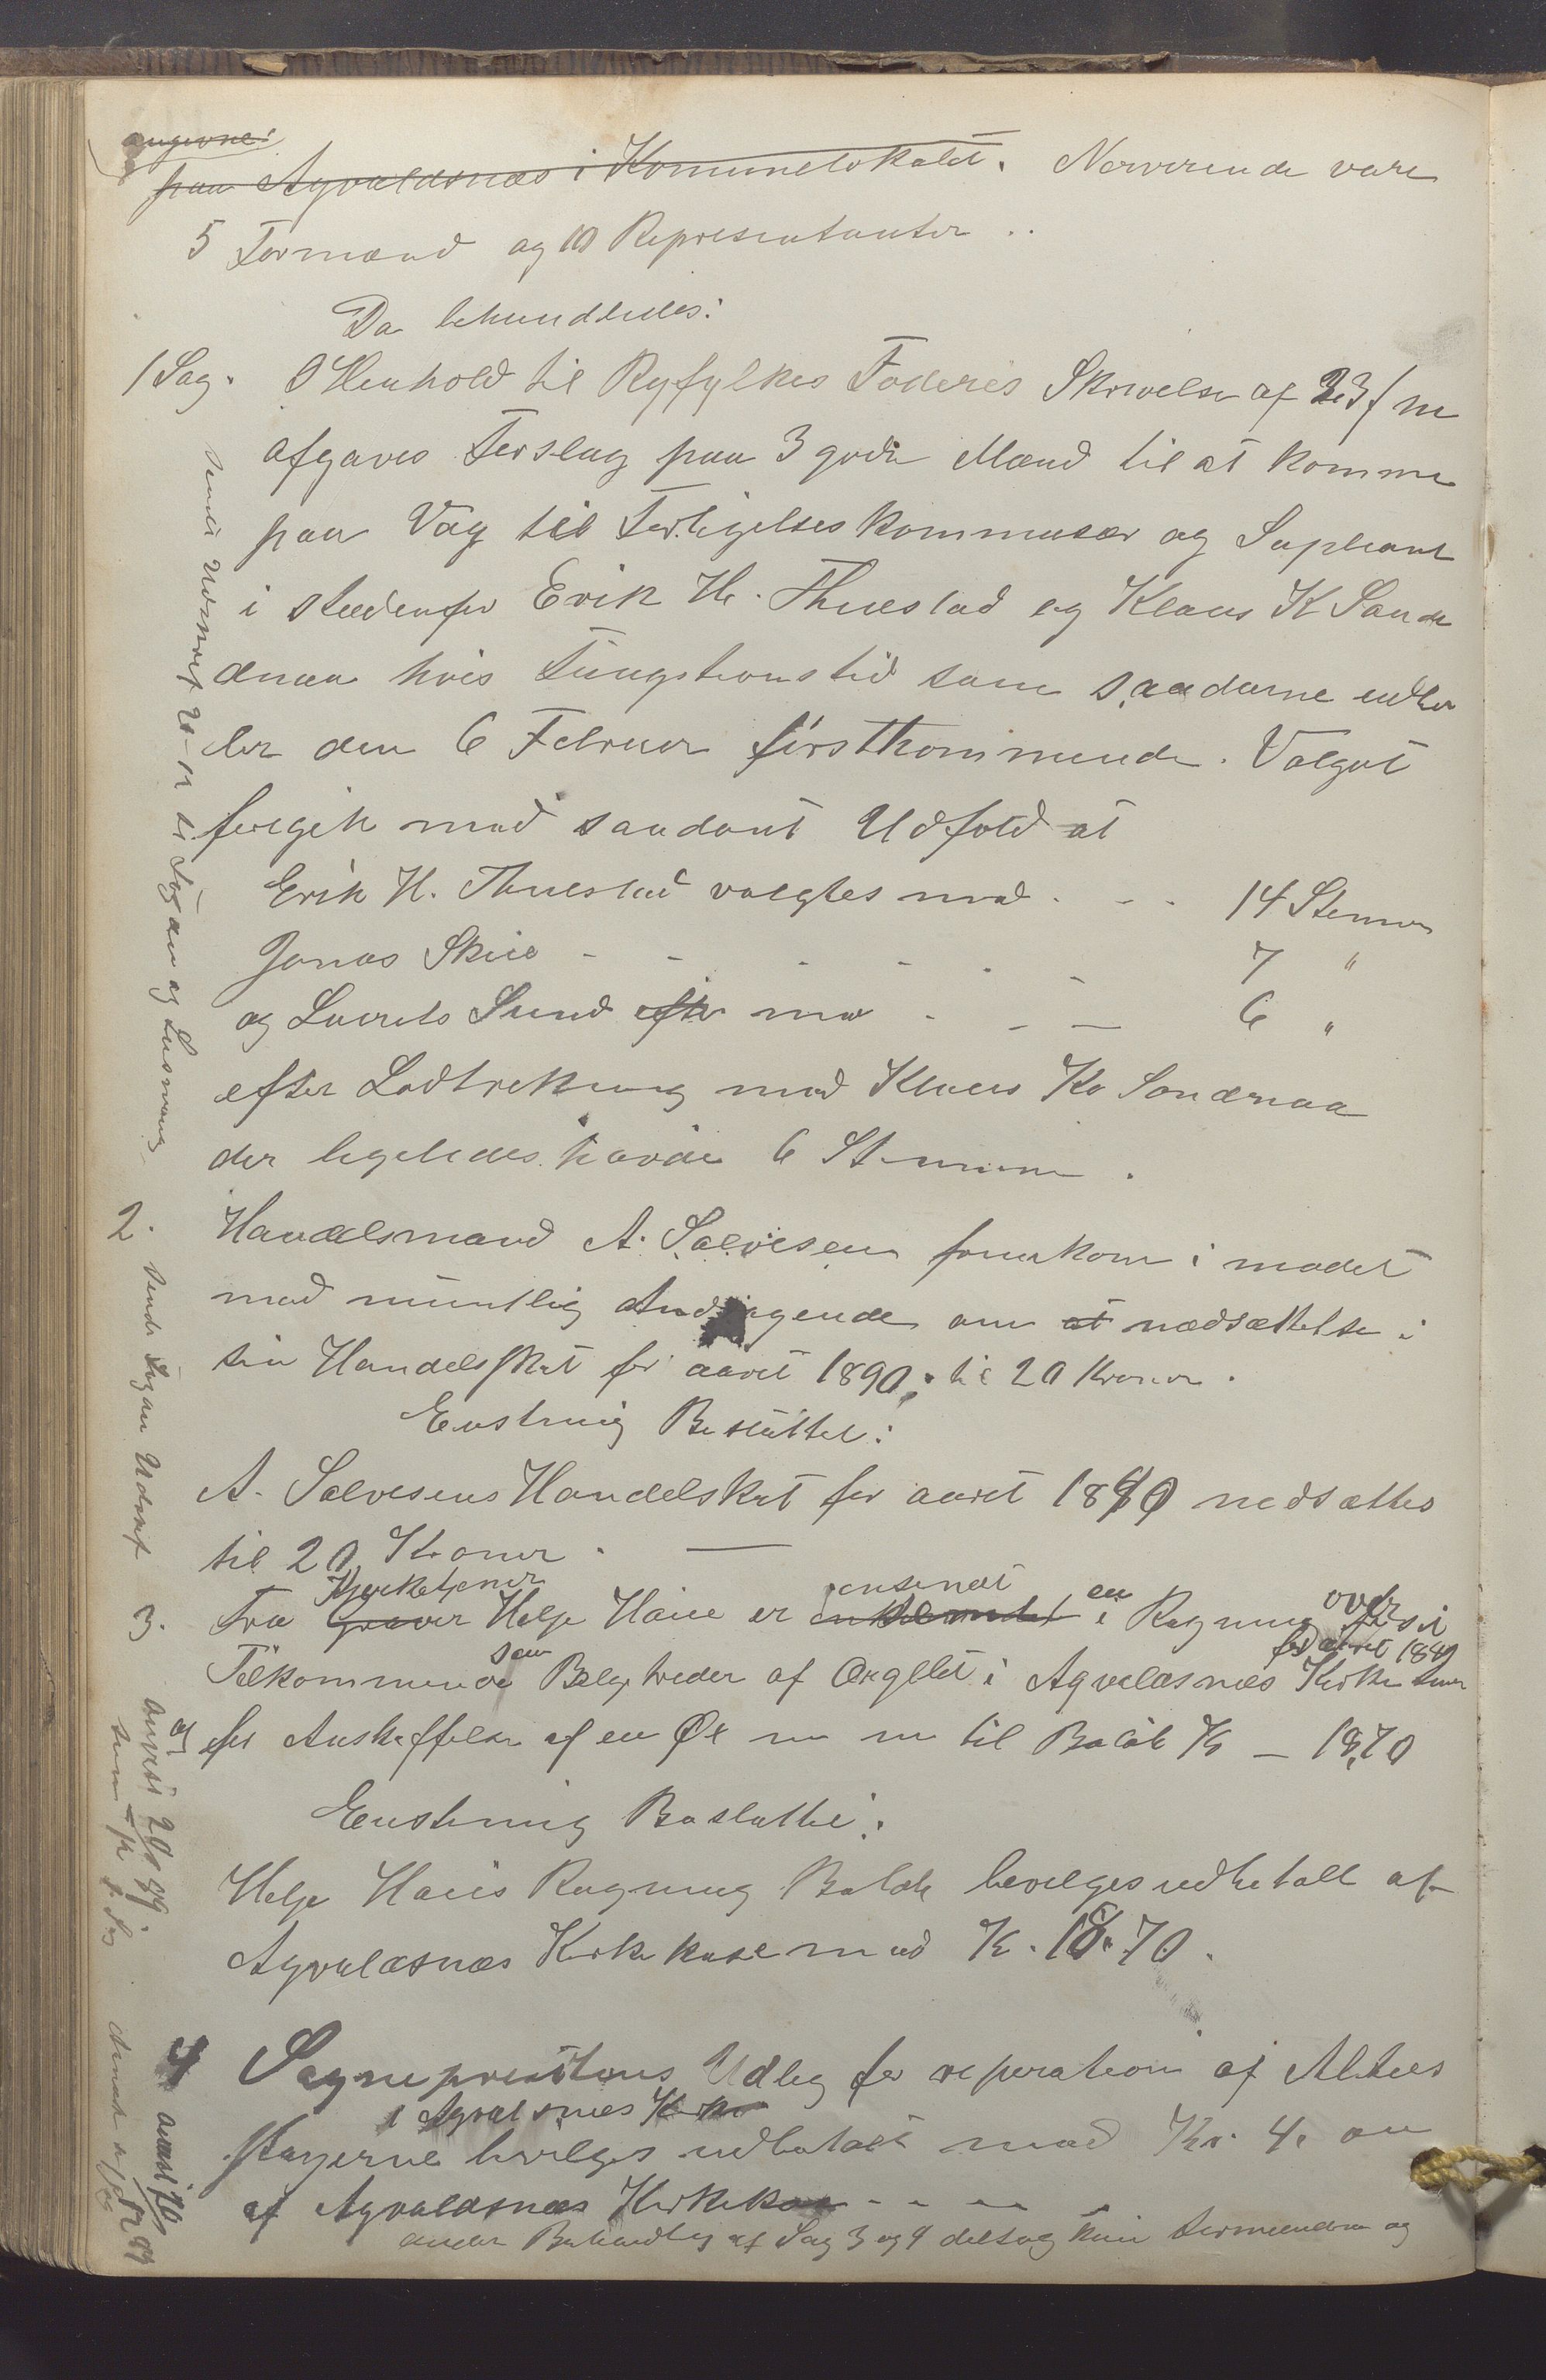 angivne
paa Agvaldsnæs i Komunelokalet. Nærverende vare
5 Formænd og 10 Representanter ..
Da behandledes:
1 Sag. I Henhold til Ryfylkes Foderies Skrivelse af 23/ m
afgaves Forslag paa 3 gode Mænd til at komme
paa Valg til Forligelseskommisær og Supleant
i stedenfor Erik H. Thuestad og Klaus K Sand
ænaa hvis Fungtionstid som saadanne udlø
ber den 6 Februar førstkommende. Valget
foregik med saadant Udfald at
Erik H. Thuestad valgtes med . - - 14 Stemmer
Jonas Skeie - - - - - - 7 "
og Laurits Sund efter med - - - 6 "
efter Lodtrekning med Klaus K. Sandænaa
der ligeledes havde 6 Stemmer.
2. Handelsmand A. Salvesen fremkom i mødet
med mundtlig Andragende om at nedsættelse i
sin Handelsskat for aaret 1890 til 20 Kroner.
Enstemig Besluttet:
A. Salvesens Handelskat for aaret 1890 nedsættes
til 20 Kroner. —
Kjerketjener indsendt en over
3 Fra Graver Helge Haue er indkommet i Regning for sit
som for aaret 1889
Tilkommende Belgtreder af Orgelet i Agvaldsnæs Kirke samt
og for Anskaffelse af en Øx m m til Beløb Kr — 18,70
Enstemig Besluttet:
Helge Haues Regning Beløb bevilges udbetalt af
Agvaldsnæs Kirkekasse med Kr. 18.70.
4 Sogneprestens Udleg for reperation af Alters
i Agvaldsnæs Kirke
stagerne bevilges udbetalt med Kr. 4.
af Agvaldsnæs Kirkekas - - -
under Behandling af Sag 3 og 4 deltog kun Formændene og